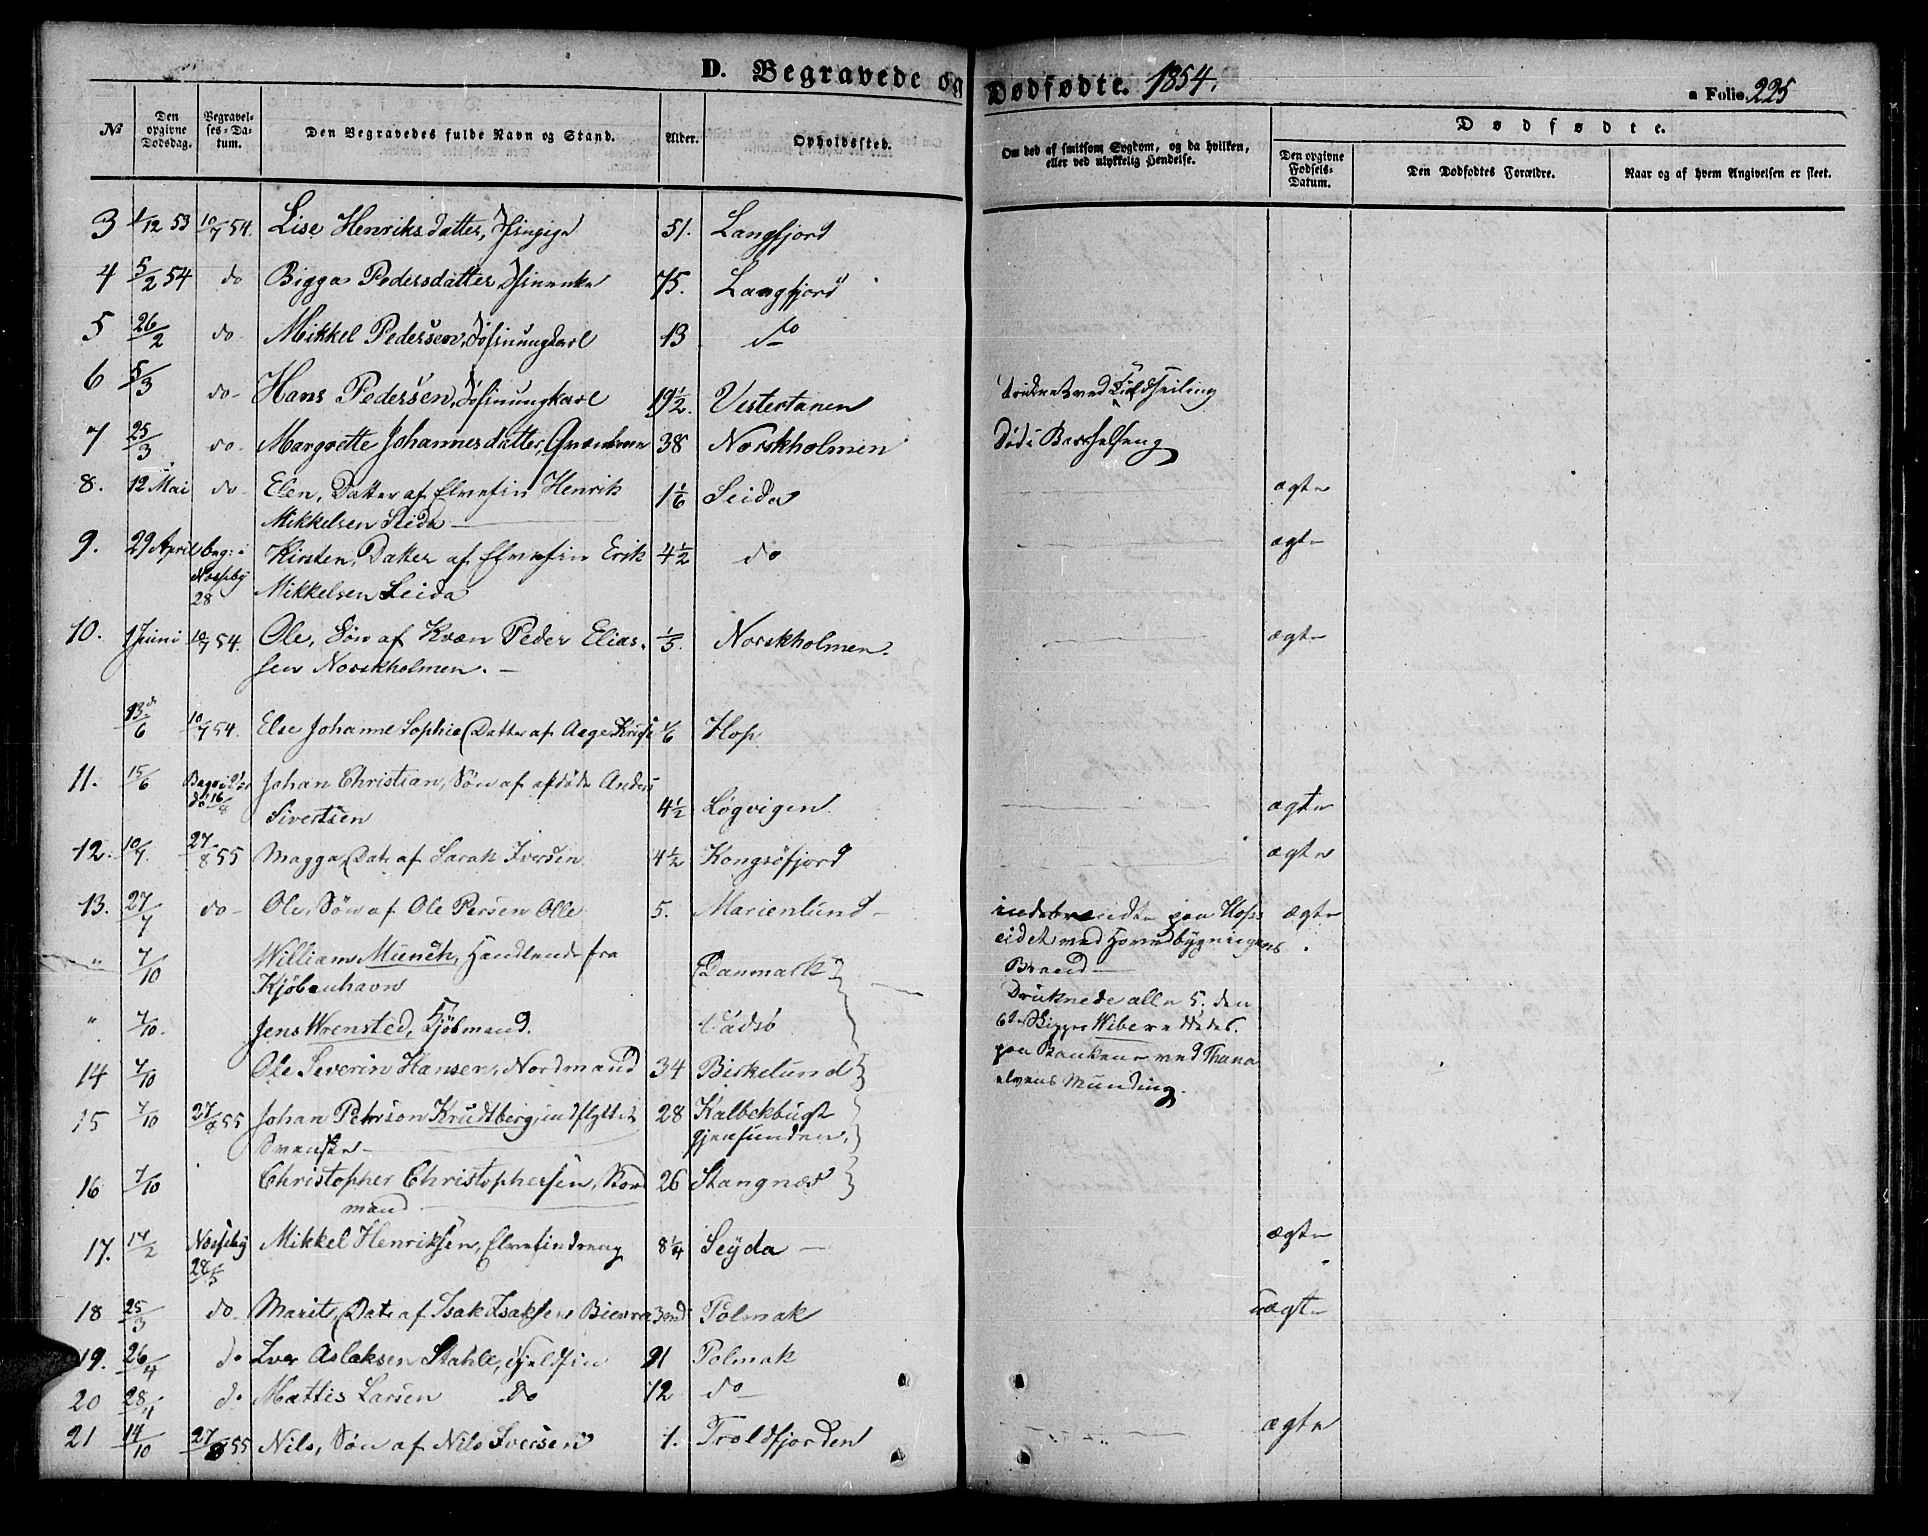 D. Begravede og Dødfødte. 1854. a Folio 225
№ Den opgivne Dødsdag. Begravelses-Datum. Den Begravedes fulde Navn og Stand. Alder. Opholdssted. Om død af smitsom Sygdom, og da hvilken, eller ved ulykkelig Hendelse. Dødfødte.
Den opgivne Fødsels-Datum. Den Dødfødtes Forældre. Naar og af hvem Angivelsen er skeet.
3 1/12 53 10/7 54. Lise Henriksdatter, 51. Langfjord
4 5/2 54 do Bigga Pedersdatter 75. Langfjord
5 26/2 do- Mikkel Pedersen, 13 do
6 5/3 do- Hans Pedersen, 19½. Vestertanen
7 25/3 do- Margrette Johannesdatter, 38 Norskholmen Død i Barselseng
8. 12 Mai do- Elen, Datter af Elvefin Henrik 1 1/6 Seida ægte
Mikkelsen Seida
9. 29 April beg: i Kirsten, Datter af Elvefin Erik 4½ do ægte
Næsseby
28 Mikkelsen Seida
10. 1 Juni 10/7 54. Ole, Søn af Kvæn Peder Elias- 1/5. Norskholmen. ægte
sen Norskholmen. –
13de/6 10/7 54. Else Johanne Sophie Datter af Aage 1/6 Hop
11. 15/6 Johan Christian, Søn af afdøde Anders
16/8 Sivertsen 4½ Løgvigen ægte
12. 10/7. 27/8 55 Magga, Dat af Sarak Iversen 4½ Kongsøfjord ægte
13. 27/7 do- Ole, Søn af Ole Persen Olle 5. Marienlund – indebrændte paa Hops ægte
eidet ved Hovedbygningens
" 7/10 William Munch, Handlende fra Danmark Brand
Kjøbenhavn
" 7/10. Jens Wrensted, Kjøbmand. Vadsø Druknede alle 5. den
6te Skipper Wibe reddedes.
14 7/10 Ole Severin Hansen, Nordmand 34 Birkelund paa Bankene ved Thana
elvens Munding.
15 7/10 27/8 55 Johan Peterson Krudtberg, indflyttet 28 Kalbekbugt
Svenske gjenfunden,
16 7/10 Christopher Christophersen, Nord 26 Stangnæs
mand
17. 14/2 Næsseby Mikkel Henriksen, Elvefindreng 8¼ Seyda – ægte
28/5
18 25/3 do- Marit, Dat af Isak Isaksen Bierra 3 Polmak uægte
19. 26/4 do Iver Aslaksen Stahle, Fjeldfin 91 Polmak
20 do Mattis Larsen do 12 do
21 14/10 27/8 55 Nils, Søn af Nils Iversen 1. Troldfjorden ægte